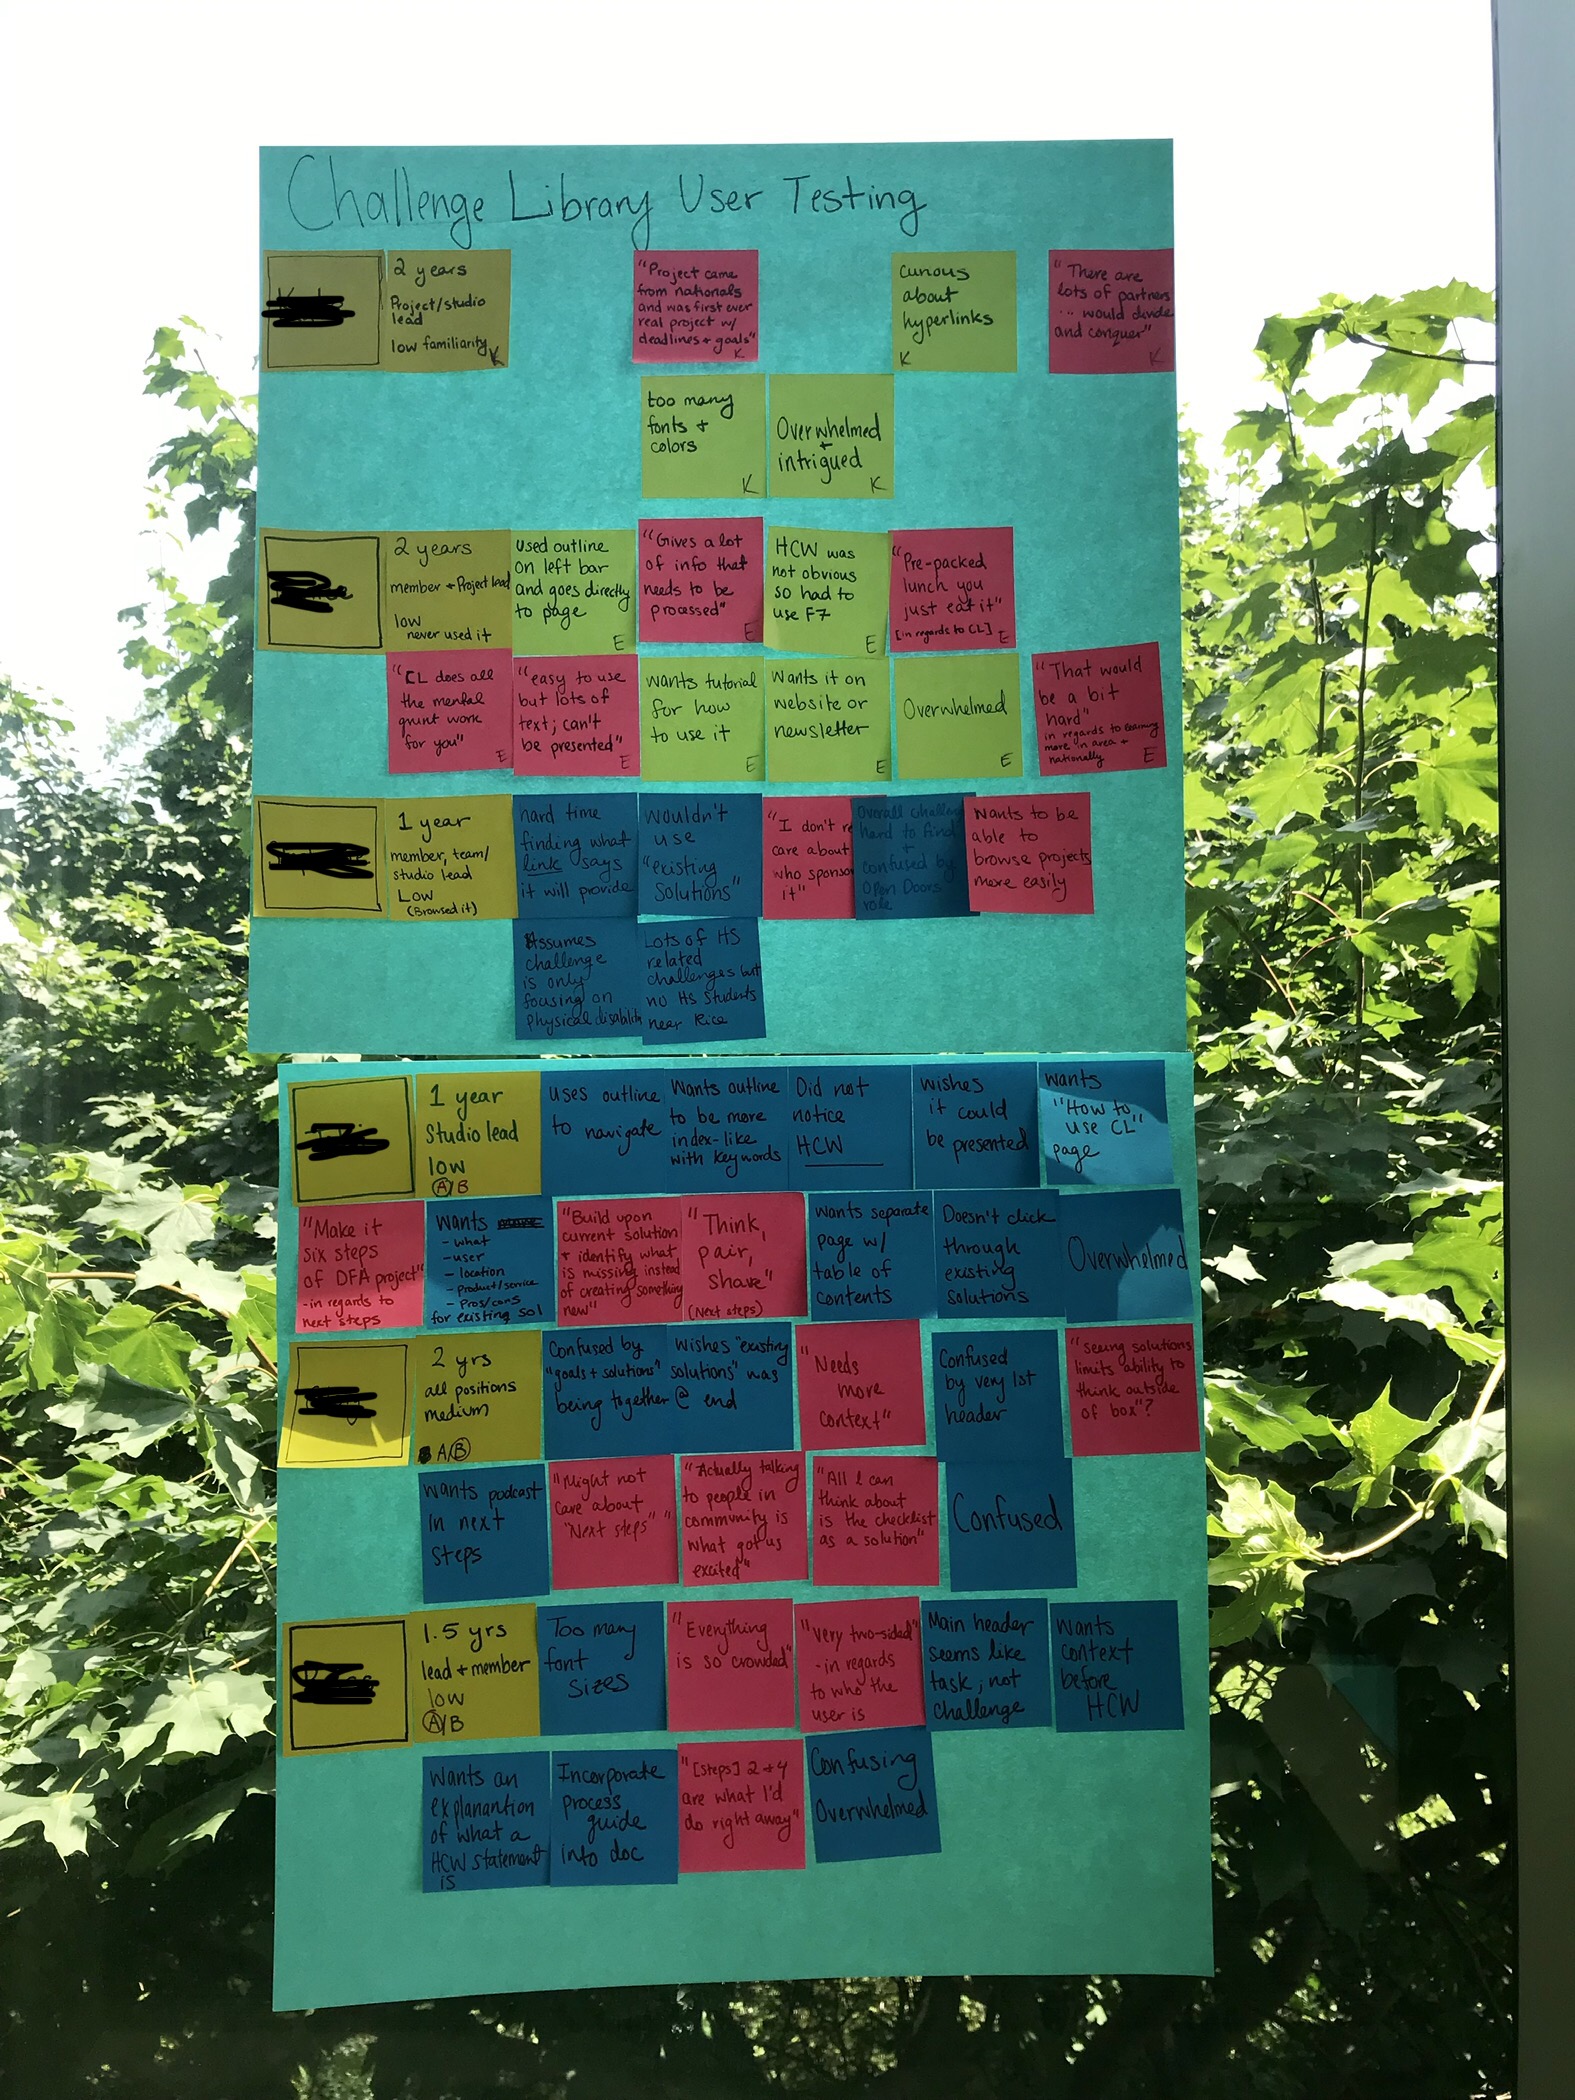 Challenge Library User Testing
2 years
Project/studio
lead
low familiarity
K
"Project came
from nationals
and was first ever
real project w/
deadlines + goals"
K
curious
about
hyperlinks
K
"There are
lots of partners
... would divide
and conquer"
K
too many
fonts +
colors
K
Overwhelmed
+
intrigued
K
2 years
member + Project lead
low
never used it
Used outline
on left bar
and goes directly
to page
E
"Gives a lot
of info that
needs to be
processed"
E
HCW was
not obvious
so had to
use F7
E
"Pre-packed
lunch you
just eat it"
[in regards to CL]
E
"CL does all
the mental
grunt work
for you"
E
"easy to use
but lots of
text; can't
be presented"
E
wants tutorial
for how
to use it
E
Wants it on
website or
newsletter
E
Overwhelmed
E
"That would
be a bit
hard"
in regards to learning
more in area +
nationally
E
1 year
member, team/
studio lead
Low
(Browsed it)
hard time
finding what
link says
it will provide
wouldn't
use
"existing
solutions"
"I don't
care about
who sponso
it"
Overall
hard to find
+
confused by
Open Doors
role
Wants to be
able to
browse projects
more easily
Assumes
challenge
is only
focusing on
physical disability
Lots of HS
related
challenges but
no HS students
near Rice
1 year
Studio lead
low
A/B
uses outline
to navigate
Wants outline
to be more
index-like
with keywords
Did not
notice
HCW
wishes
it could
be presented
wants
"How to
use CL"
page
"Make it
six steps
of DFA project"
-in regards to
next steps
Wants
- what
- user
- location
- Product/service
- Pros/cons
for existing sol
"Build upon
current solution
+ identify what
is missing instead
of creating something
new"
"Think,
pair,
share"
(Next steps)
wants separate
page w/
table of
contents
Doesn't click
through
existing
solutions
Overwhelmed
2 yrs
all positions
medium
A/B
Confused by
"goals + solutions"
being together
Wishes "existing
solutions" was
@ end
"Needs
more
context"
Confused
by very 1st
header
"seeing solutions
limits ability to
think outside
of box"?
wants podcast
in next
steps
"Might not
care about
"Next steps" "
"Actually talking
to people in
community is
what got us
excited"
"All I can
think about
is the checklist
as a solution"
Confused
1.5 yrs
lead + member
low
A/B
Too many
font
sizes
"Everything
is so crowded"
"Very two-sided"
-in regards
to who the
user is
Main header
seems like
task, not
challenge
Wants
context
before
HCW
Wants an
explanantion
of what a
HCW statement
is
Incorporate
process
guide
into doc
"[Steps] 2 + 4
are what I'd
do right away"
Confusing
Overwhelmed